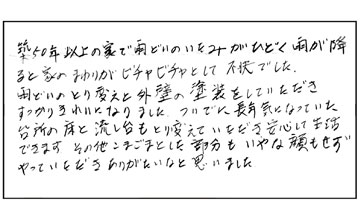 築50年以上の家で雨どいのいたみがひどく雨が降
ると家のまわりがビチャビチャとして不快でした。
雨どいのとり変えと外壁の塗装をしていただき
すっかりきれいになりました。ついでに長年気になっていた
台所の床と流し台もとり変えていただき安心して生活
できます その他こまごまとした部分もいやな顔もせず
やっていただきありがたいなと思いました